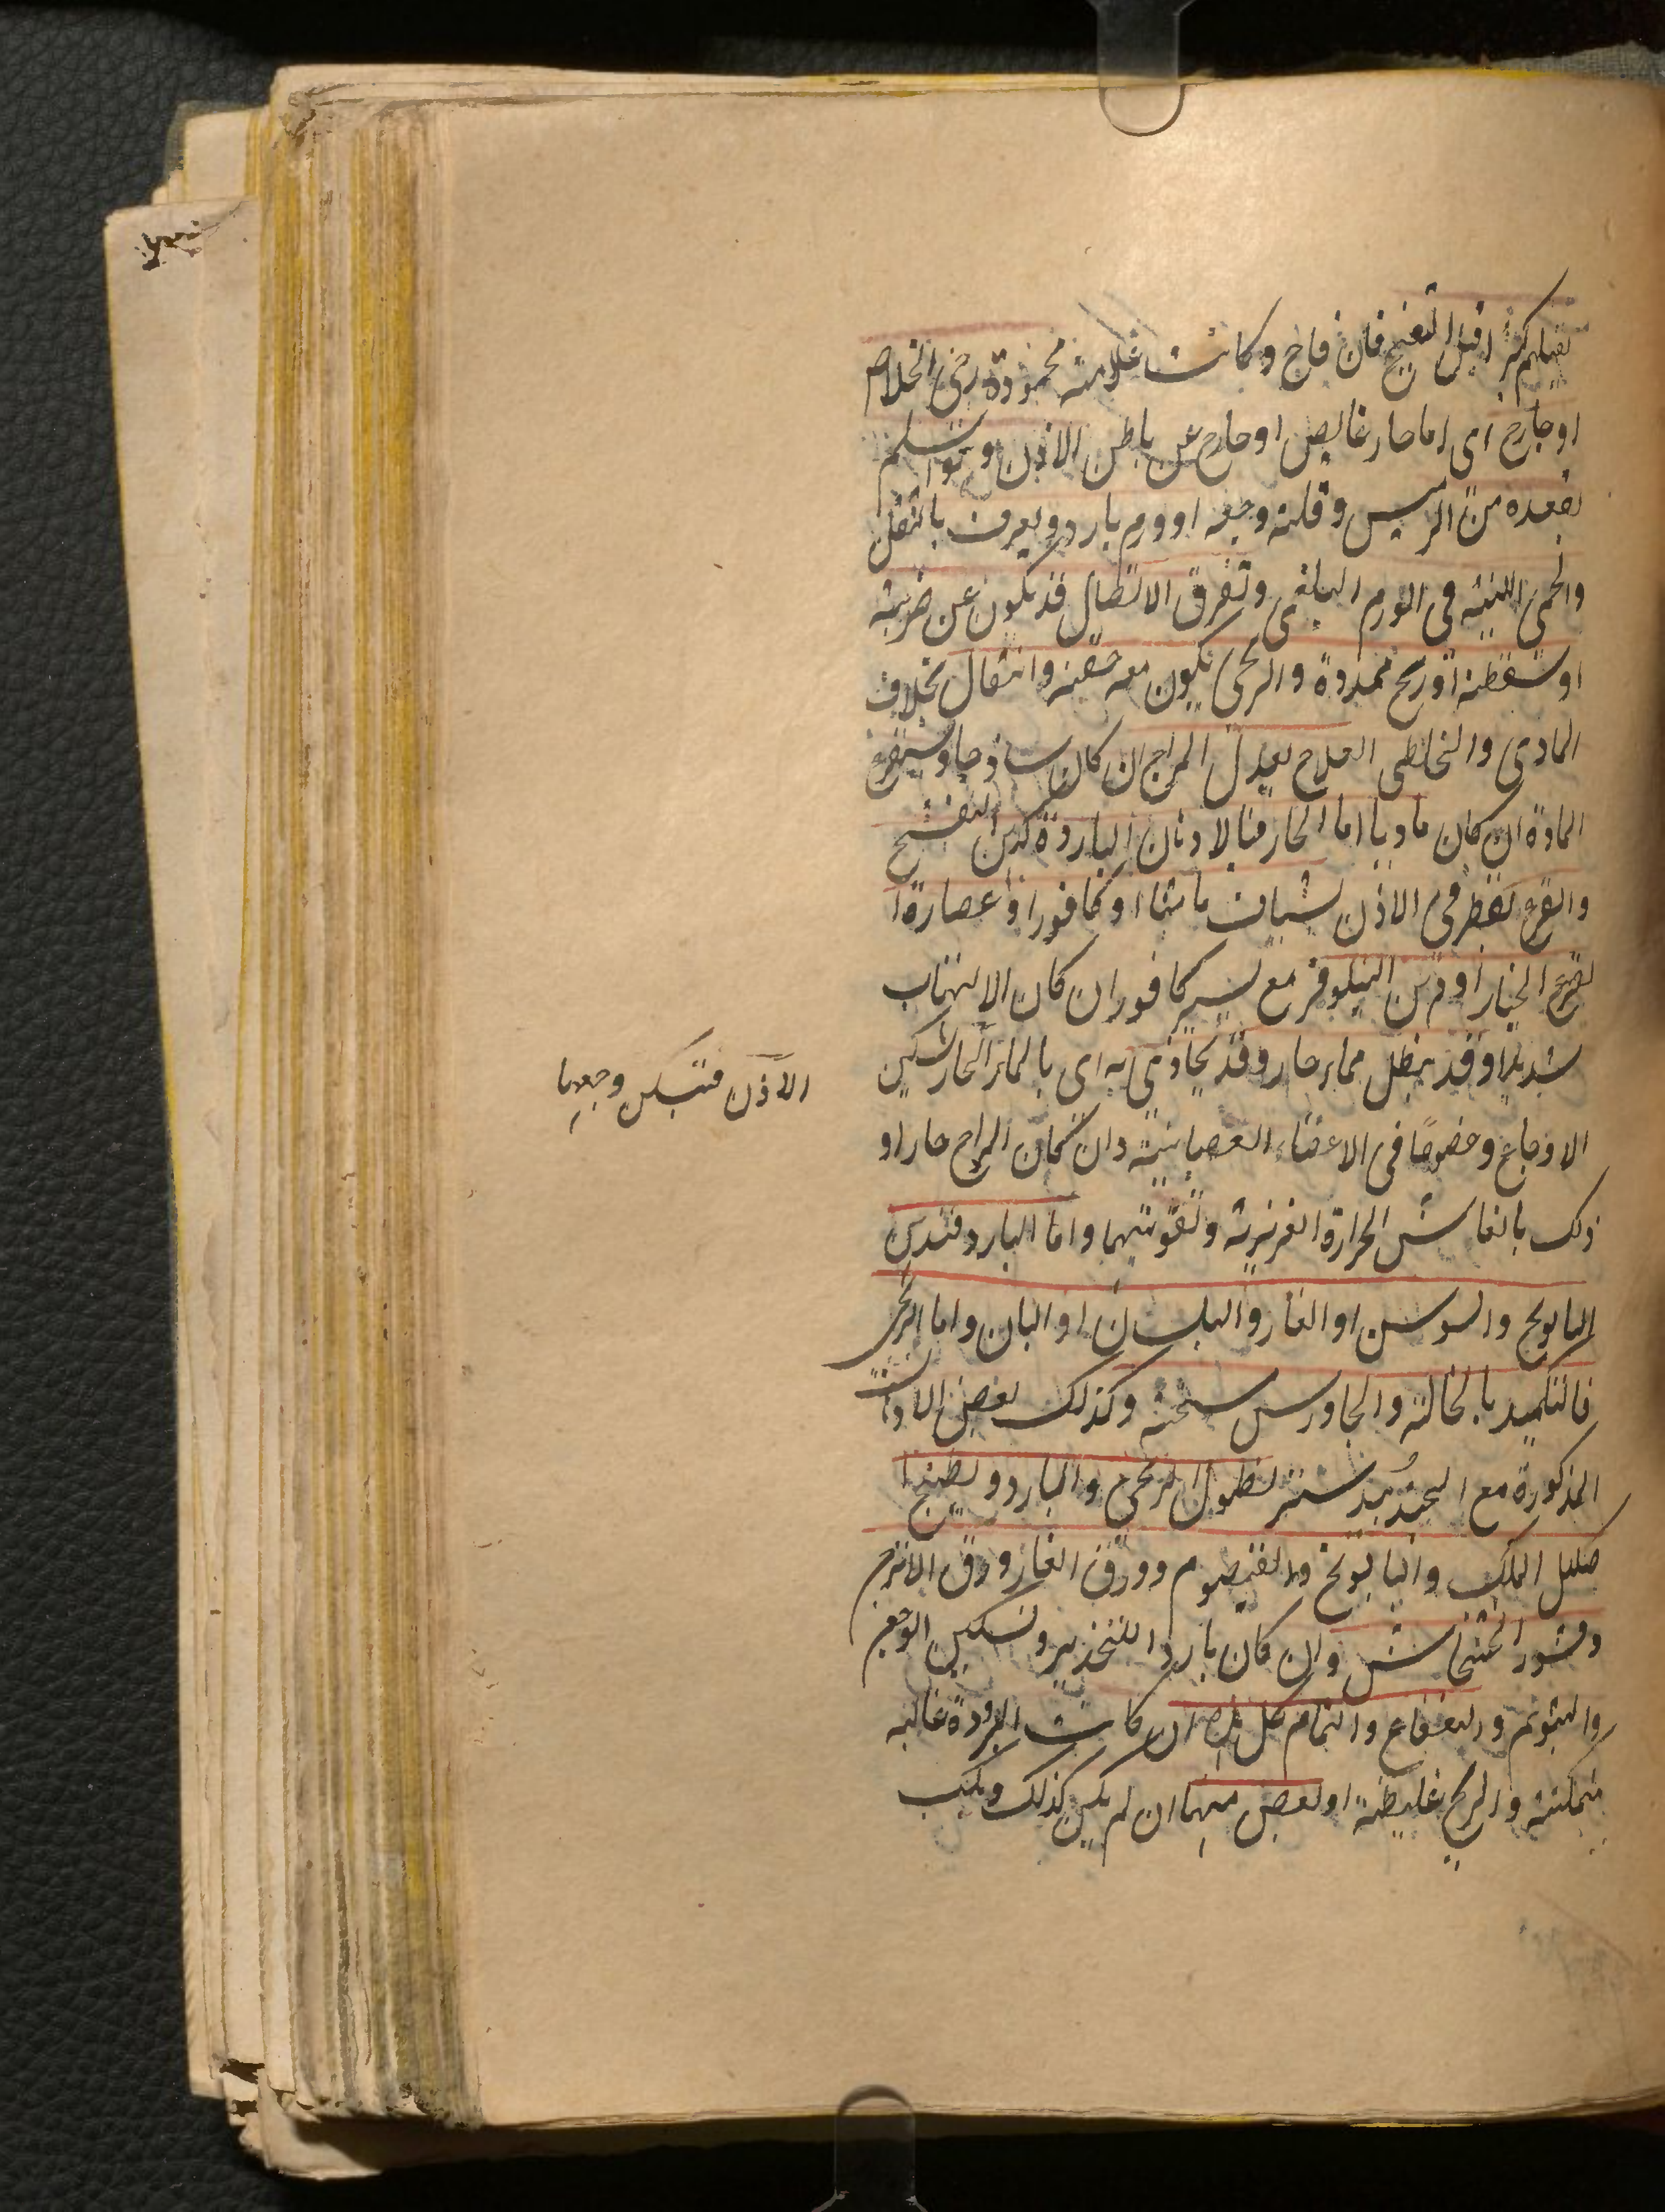 تقيلهم كثيرا قبل التقيح فان قاح وكانت علامته محمودة رجى الخلاص
او خارج اى اما حار غايص او خارج عن باطن الاذن وهو اسلم
لبعده من الرئيس وقلته وجعه او ورم بارد ويعرف بالثقل
والحمى اللينة فى الورم البلغمى وتفرق الاتصال قد يكون عن ضربة
او سقطة او ريح ممددة والريحى يكون معه خفة وانتقال بخلاف
المادى والخلطى العلاج يعدل المزاج ان كان ساذجا ويستفرغ
المادة ان كان ماديا اما الحار فبالادهان الباردة كدهن البنفسج
والقرع تقطر فى الاذن شياف ماميثا او كافور او عصارة
القرع الخيار او دهن النيلوفر مع يسير كافور ان كان الالتهاب
شديدا وقد ينطل بماء حار وقد يحاذى به اى بالماء الحار لتسكين
الاوجاع وخصوصا فى الاعضاء العصبانية وان كان المزاج حارا و
ذلك بانعاش الحرارة الغريزية وتقويتهما واما البارد فبدهن
البابونج والسوسن او الغار والبلسان او البان واما الريحى
فالتكميد بالنخالة والجاورس سخنة وكذلك بعض الادهان
المذكورة مع الجندبيدستر نطول الريحى والبارد ويطبخ ا
كليل الملك والبابونج والقيصوم وورق الغار وورق الاترج
وقشور الخشخاش وان كان باردا للتخدير وتسكين الوجع
والنعناع والنمام كل ان كانت البرودة غالبة
متمكنة والريح غليظة او بعض منهما ان لم يكن كذلك ويكب
الاذن فتسكن وجعها